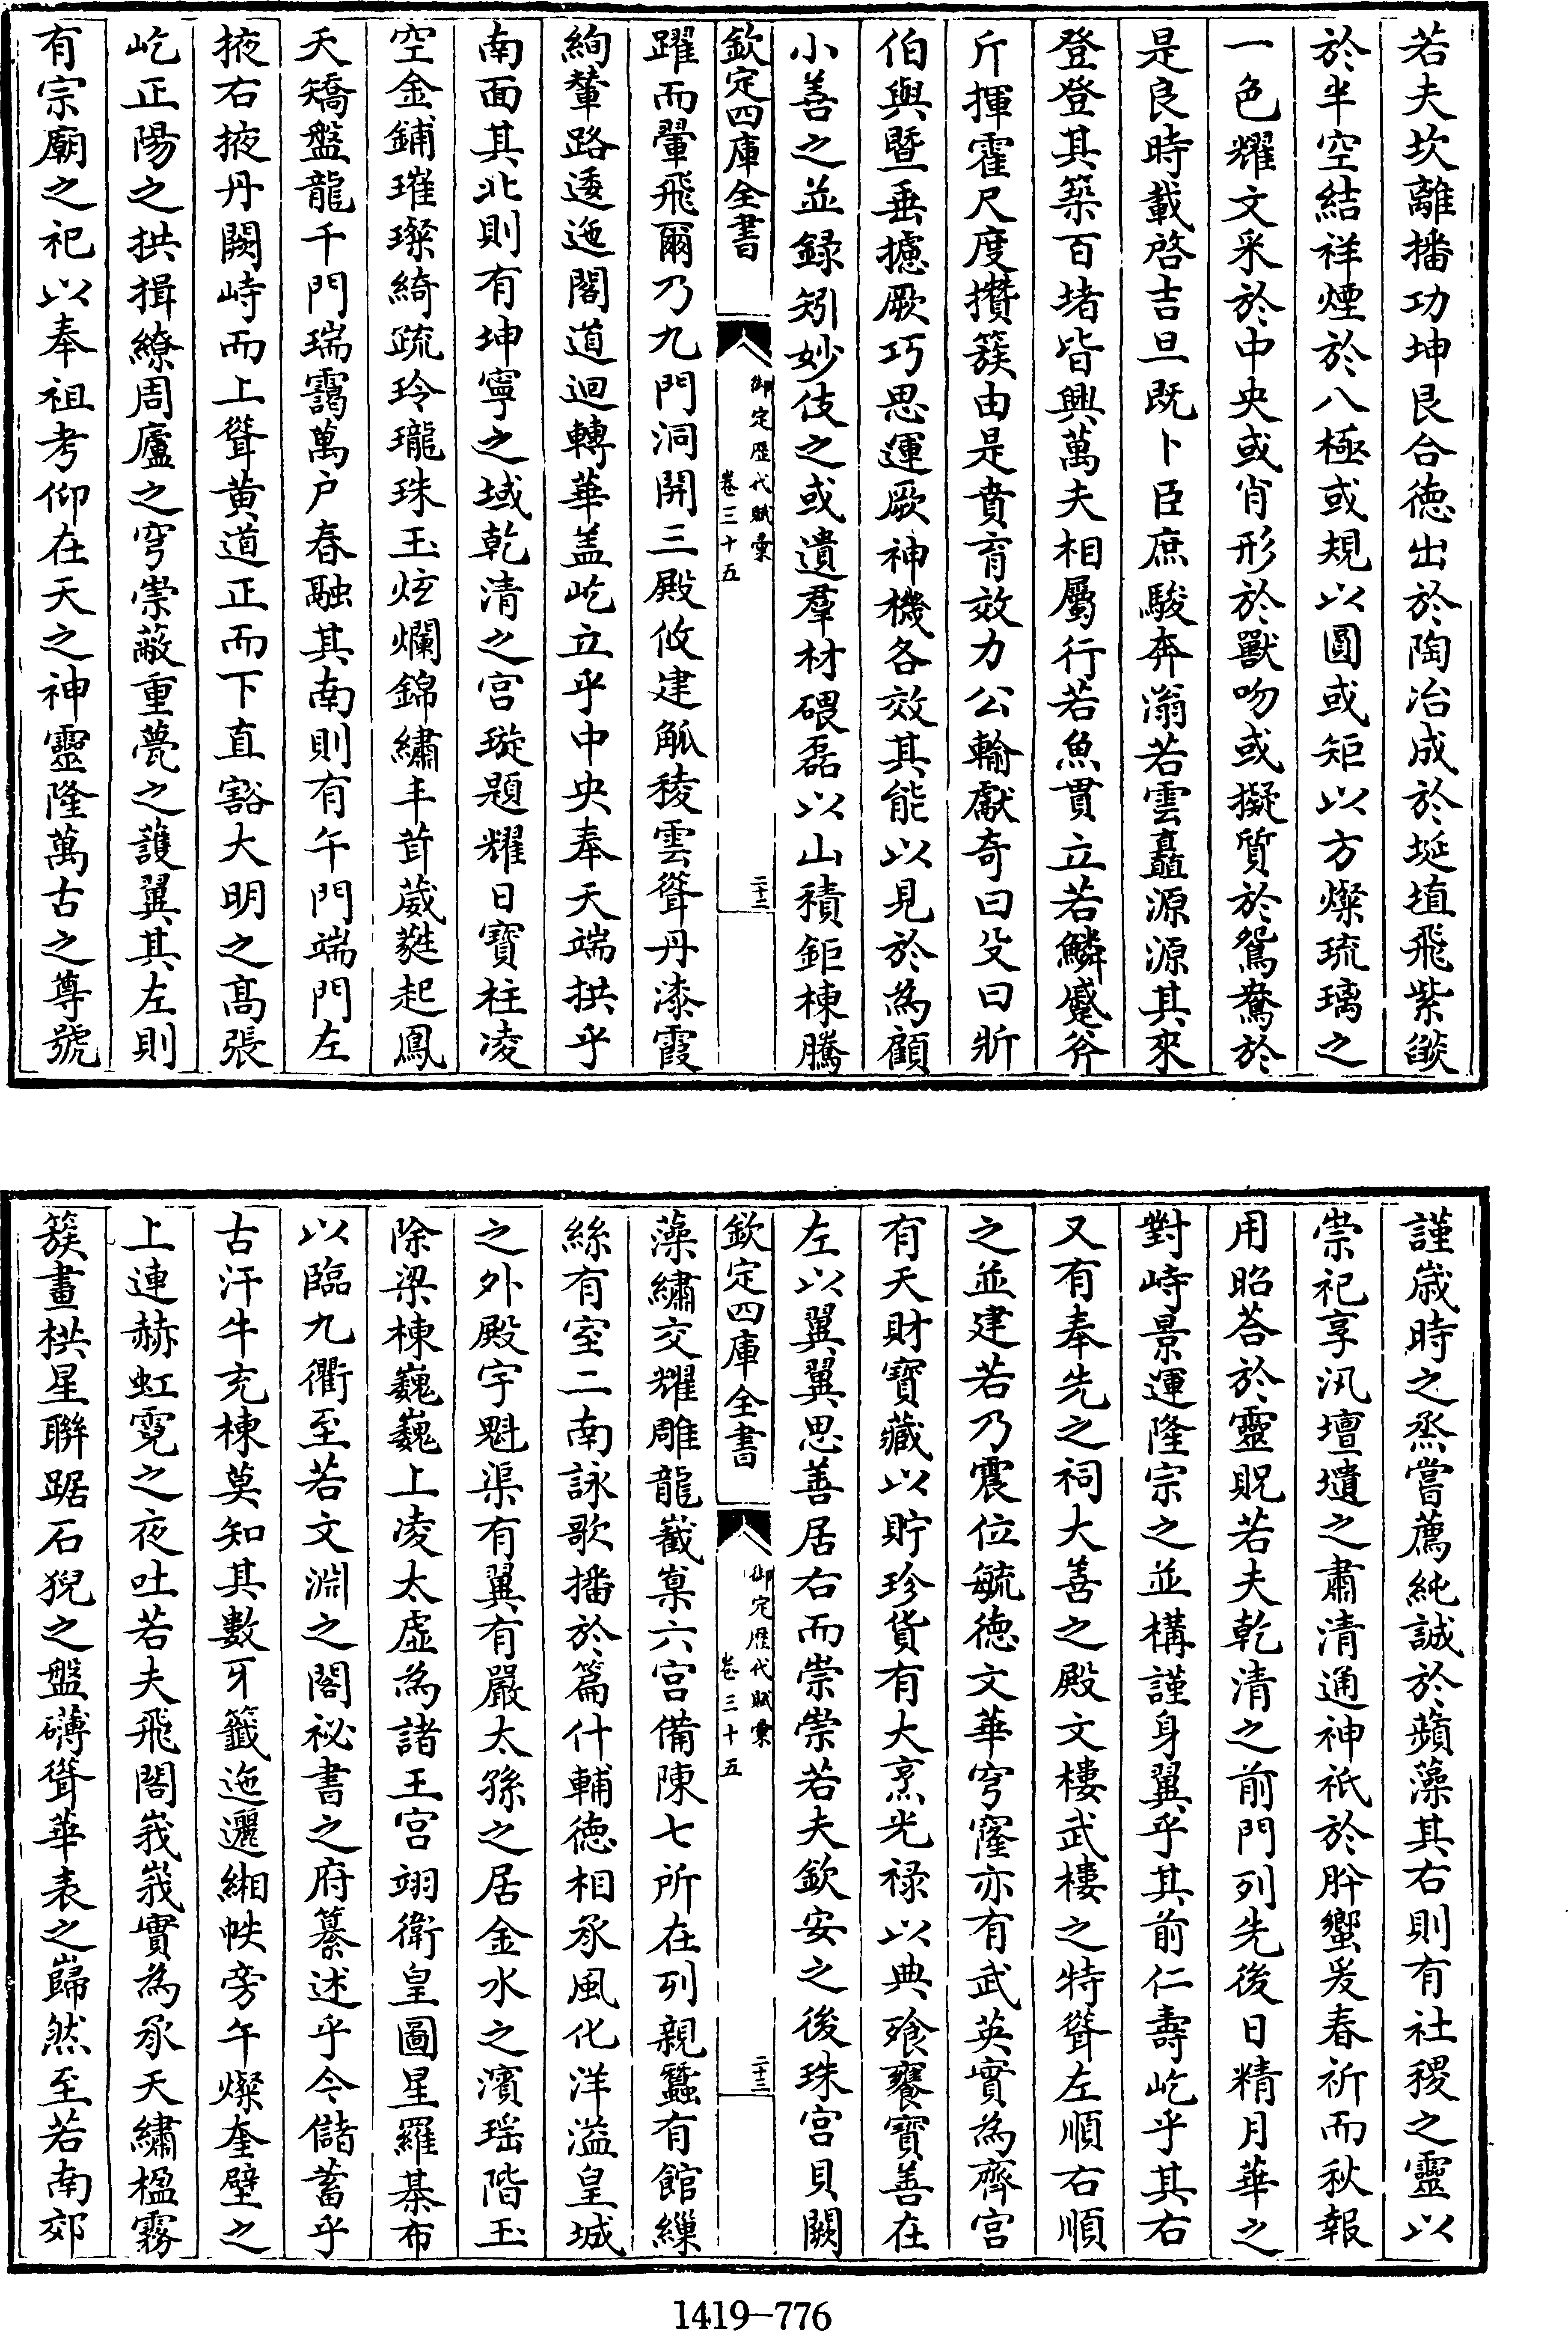 若夫坎離播功坤艮合徳出於陶冶成於埏埴飛紫燄
於半空結祥煙於八極或規以圓或矩以方燦琉璃之
一色耀文采於中央或肖形於獸吻或擬質於鴛鴦於
是良時載啓吉旦既卜臣庶駿奔滃若雲矗源源其來
登登其築百堵皆興萬夫相屬行若魚貫立若鱗蹙斧
斤揮霍尺度攢簇由是賁育效力公輸獻奇曰殳曰斨
伯與暨垂攄厥巧思運厥神機各效其能以見於為顧
小善之並録矧妙伎之或遺羣材磈磊以山積鉅棟騰
欽定四庫全書
御定歴代賦彙
卷三十五
二十二
躍而翬飛爾乃九門洞開三殿攸建觚稜雲聳丹漆霞
絢輦路逶迤閣道迴轉華盖屹立乎中央奉天端拱乎
南面其北則有坤寧之域乾清之宫璇題耀日寶柱凌
空金鋪璀璨綺疏玲瓏珠玉炫爛錦繡丰茸葳蕤起鳳
夭矯盤龍千門瑞靄萬户春融其南則有午門端門左
掖右掖丹闕峙而上聳黄道正而下直豁大明之髙張
屹正陽之拱揖繚周廬之穹崇蔽重甍之䕶翼其左則
有宗廟之祀以奉祖考仰在天之神靈隆萬古之尊號
謹歳時之烝嘗薦純誠於蘋藻其右則有社稷之靈以
崇祀享汛壇壝之肅清通神祇於肸蠁爰春祈而秋報
用昭荅於靈貺若夫乾清之前門列先後日精月華之
對峙景運隆宗之並構謹身翼乎其前仁壽屹乎其右
又有奉先之祠大善之殿文樓武樓之特聳左順右順
之並建若乃震位毓徳文華穹窿亦有武英實為齊宫
有天財寶藏以貯珍貨有大烹光禄以典飱饔寶善在
左以翼翼思善居右而崇崇若夫欽安之後珠宫貝闕
欽定四庫全書
御定歴代賦彙
卷三十五
二十三
藻繡交耀雕龍嶻嵲六宫備陳七所在列親蠶有館繅
絲有室二南詠歌播於篇什輔徳相承風化洋溢皇城
之外殿宇魁渠有翼有嚴太孫之居金水之濱瑶階玉
除梁棟巍巍上凌太虚為諸王宫翊衛皇圖星羅棊布
以臨九衢至若文淵之閣祕書之府纂述乎今儲蓄乎
古汗牛充棟莫知其數牙籤迤邐緗帙旁午燦奎壁之
上連赫虹霓之夜吐若夫飛閣峩峩實為承天繡楹霧
簇畫栱星聯踞石猊之盤礴聳華表之巋然至若南郊
1419-776